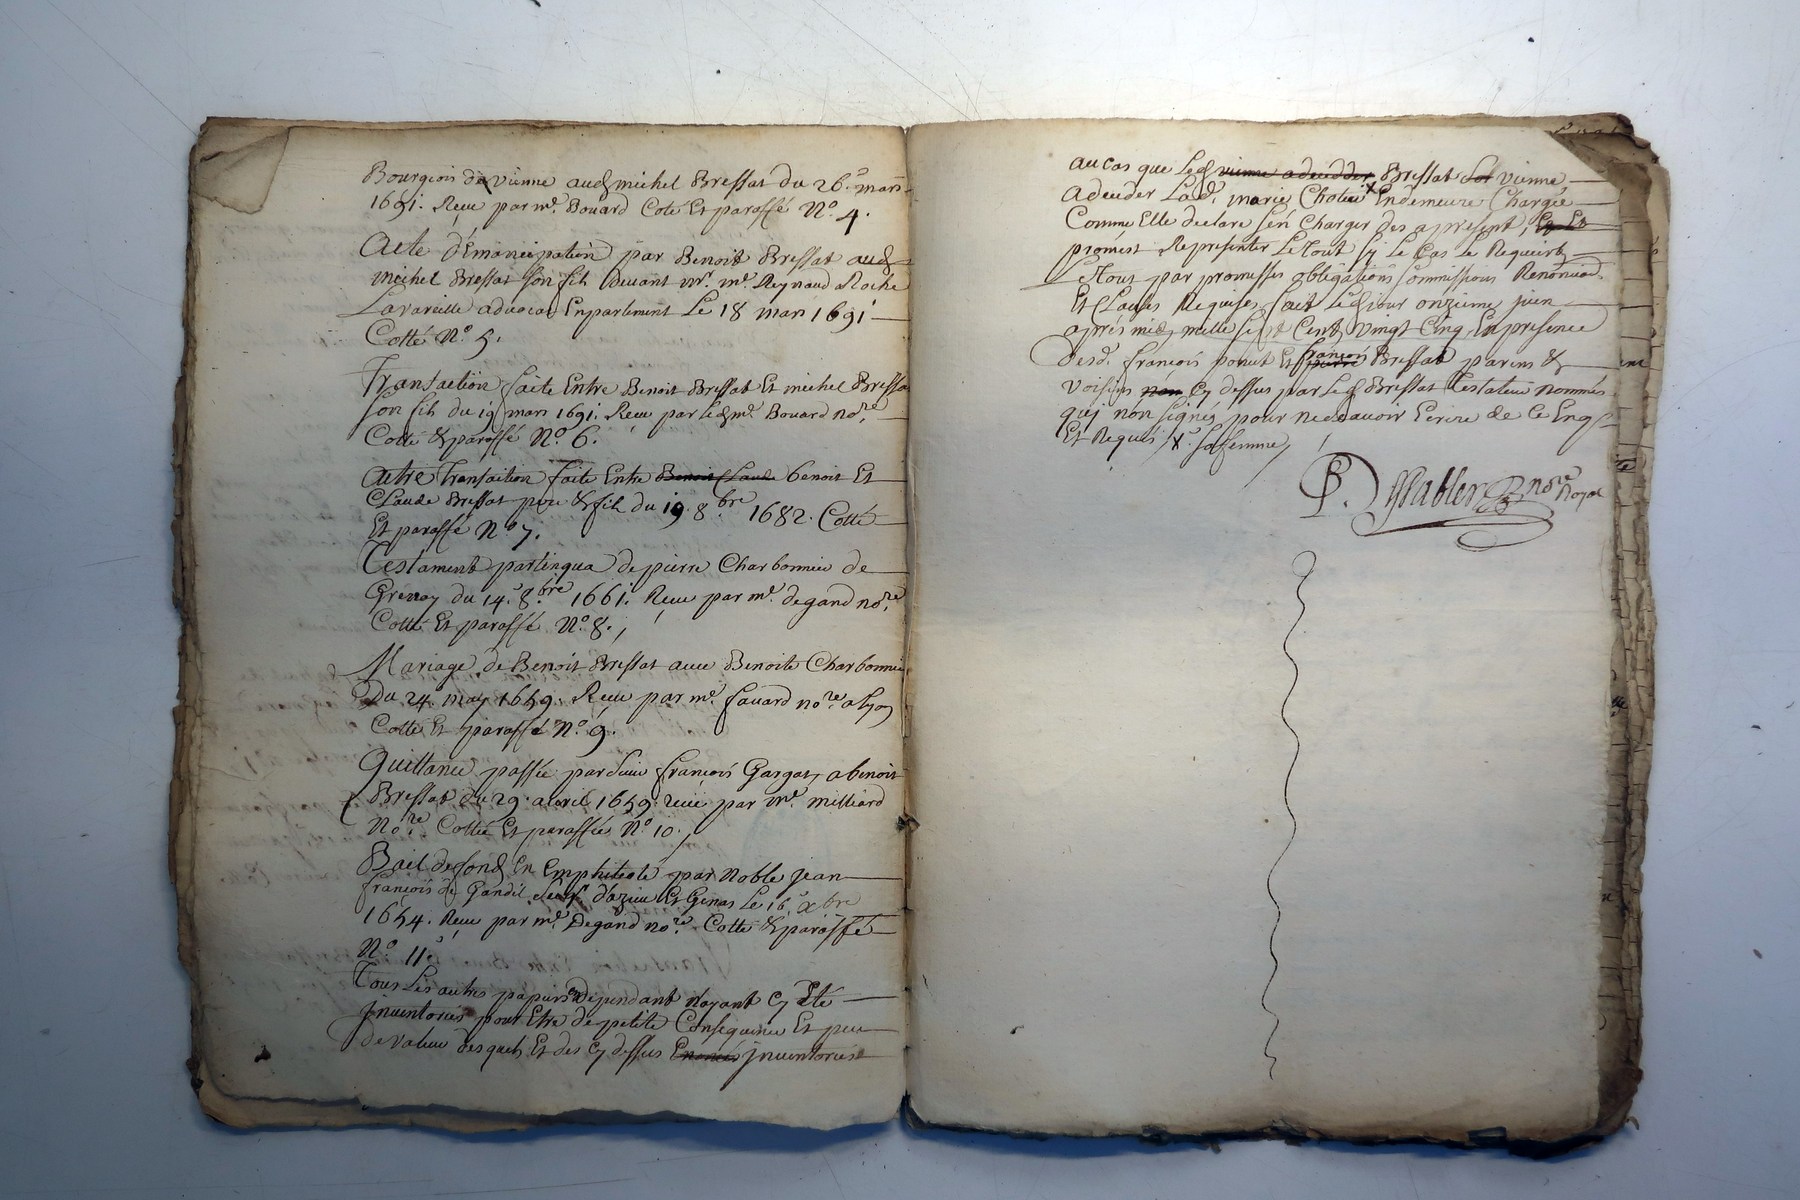 Bourgeois de vienne aud michel Bressat du 26e mars
1691. Receu par me. Bouard Coté Et paraffé No. 4.
Acte d'Emancipation par Benoit Bressat aud
michel Bressat son fils devant mr. me. Reynaud Roche
Lavareille advocat En parlement Le 18 mars 1691
Cotté No. 5.
Transaction faite Entre Benoit Bressat Et michel Bressat
son fils du 19 mars 1691. Receu par led me. Bouard nore.
Cotté & paraffé No. 6.
Autre Transaction faite Entre Benoit Claude benoit Et
Claude Bressat pere & fils du 19. 8bre 1682. Cotté
Et paraffé No 7.
Testament de pierre Charbonnier de
Grenay du 14e. 8bre 1661. Receu par me. degand nore.
Cotté Et paraffé No. 8.
Mariage de Benoit Bressat avec Benoite Charbonnier
Du 24. may 1659. Receu par me. favard nore. a lyon
Cotté Et paraffé No. 9.
Quittance passée par françois Gargat, a benoit
Bressat du 29. avril 1659. receüe par me. milliard
Nore. Cottée Et paraffée No 10.
Bail de fond En Emphiteote par Noble jean
françois de Gandil d'azieu Et Genas Le 16e xbre
1654. Receu par me. Degand nore. Cotté & paraffé
No 11e
Tous Les autres papiers en dependant N'ayant Cy Eté
jnventoriés pour Etre de petite Consequence Et peu
de valeur desquels Et des Cy dessus jnventoriés
au cas que Led vienne adcedder Bressat vienne
adceder Lad. marie x En demeure Chargée
Comme Elle declare s'en Charger des apresent,
promest Representer Le tout sy Le Cas Le Requiert
par promesses obligations soumissions Renonciaons
Et Clauses Requises fait Led jour onzieme juin
apres midy mille sept Cents vingt Cinq En presence
desd. françois ponut Et pierre françois Bressat parens &
voisins Cy dessus par Led Bressat Testateur nommés
quj non signés pour ne scavoir Ecrire de Ce Enqs
Et Requis x sa femme
nore Royal